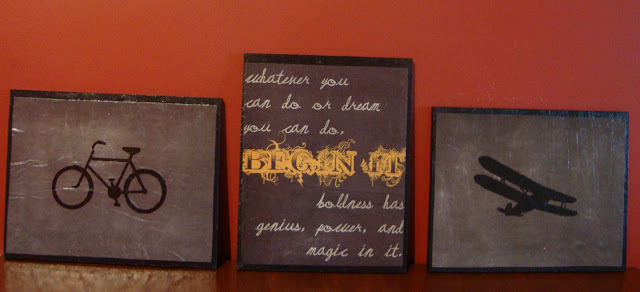 whatever you
can do or dream
you can do,
BEGIN IT
boldness has
genius, power, and
magic in it.